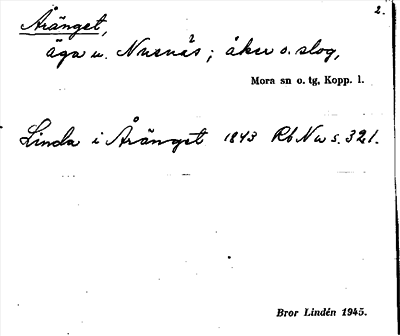 2.
Åränget,
äga u. Nusnäs; åker o. slog,
Mora sn o. tg, Kopp. l.
Linda i Åränget 1843 Rb Nu s. 321.
Bror Lindén 1945.